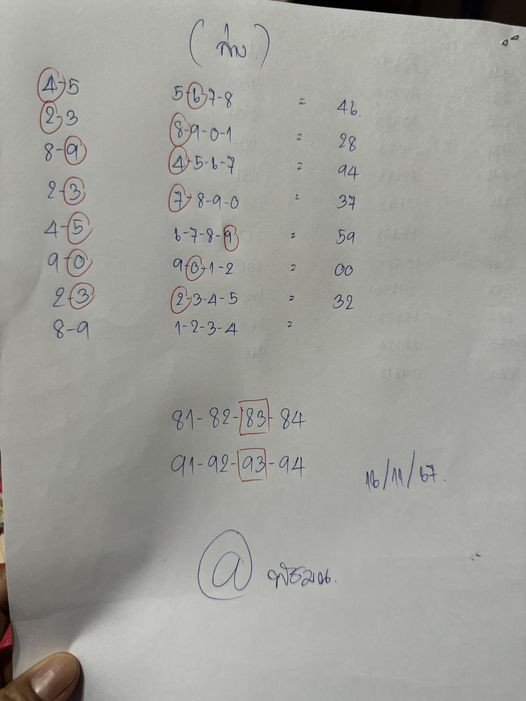 (ล่าง)
4-5 5-6-7-8 = 46
2-3 8-9-0-1 = 28
8-9 4-5-6-7 = 94
2-3 7-8-9-0 = 37
4-5 6-7-8-9 = 59
9-0 9-0-1-2 = 00
2-3 2-3-4-5 = 32
8-9 1-2-3-4 =
81-82-83-84
91-92-93-94
16/11/67.
@